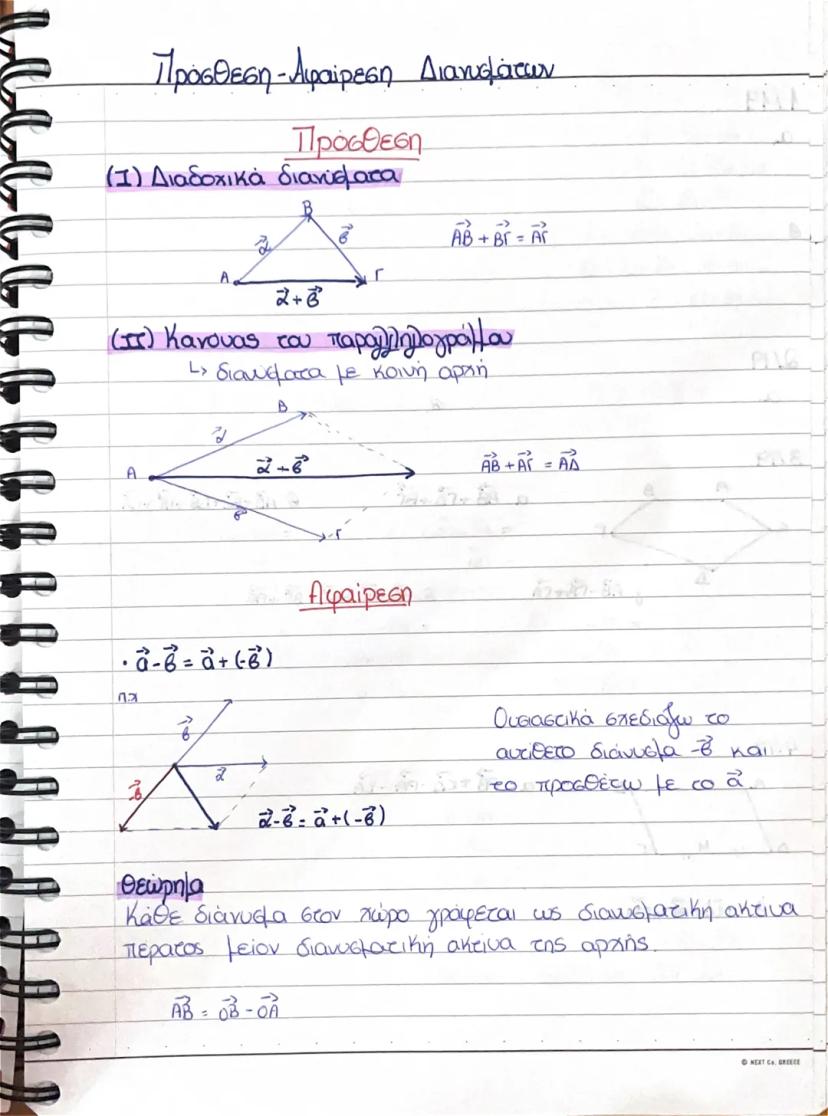 Πρόσθεση-Αφαίρεση Διανυσμάτων
Πρόσθεση
(I) Διαδοχικά διανύσματα
B
α⃗ β⃗
AB⃗ + BΓ⃗ = AΓ⃗
A Γ
α⃗ + β⃗
(II) Κανόνας του παραλληλογράμμου
↳ διανύσματα με κοινή αρχή
B
α⃗
A α⃗ + β⃗
AB⃗ + AΓ⃗ = AΔ⃗
β⃗
Γ
Αφαίρεση
· α⃗ - β⃗ = α⃗ + (-β⃗)
π.χ
β⃗
α⃗
-β⃗
α⃗ - β⃗ = α⃗ + (-β⃗)
Ουσιαστικά σχεδιάζω το
αντίθετο διάνυσμα -β⃗ και
το προσθέτω με το α⃗.
Θεώρημα
Κάθε διάνυσμα στον χώρο γράφεται ως διανυσματική ακτίνα
πέρατος μείον διανυσματική ακτίνα της αρχής.
AB⃗ = OB⃗ - OA⃗
© NEXT Co. GREECE